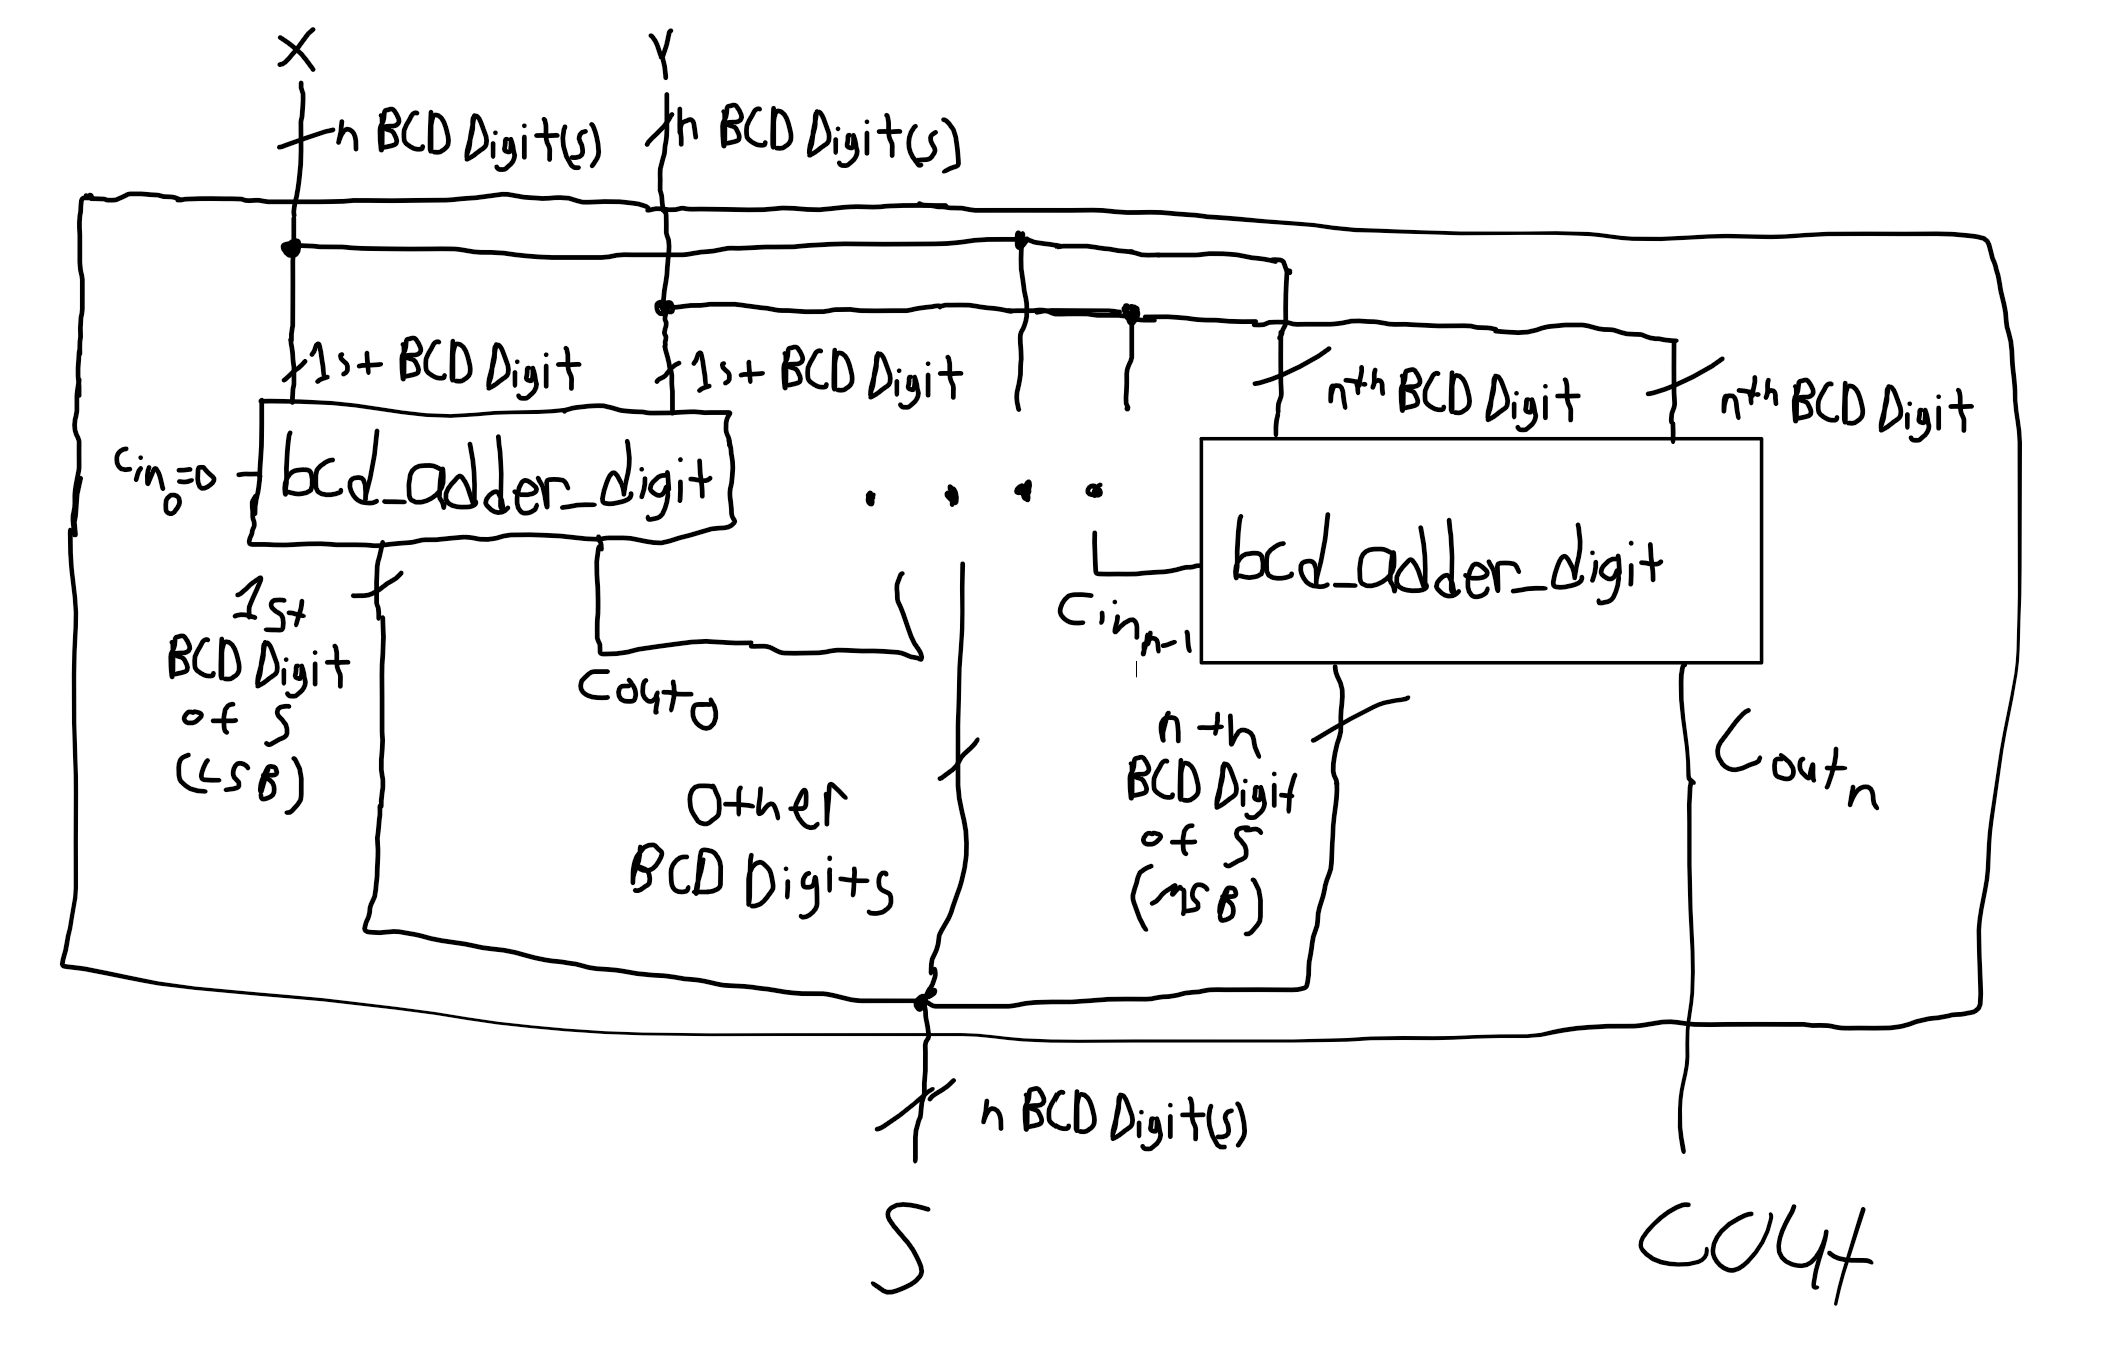 X
Y
n BCD Digit(s)
n BCD Digit(s)
1st BCD Digit
1st BCD Digit
nth BCD Digit
nth BCD Digit
cin0=0
bcd_adder_digit
bcd_adder_digit
cinn-1
1st
BCD Digit
of S
(LSB)
cout0
Other
BCD Digits
nth
BCD Digit
of S
(MSB)
Coutn
n BCD Digit(s)
S
cout